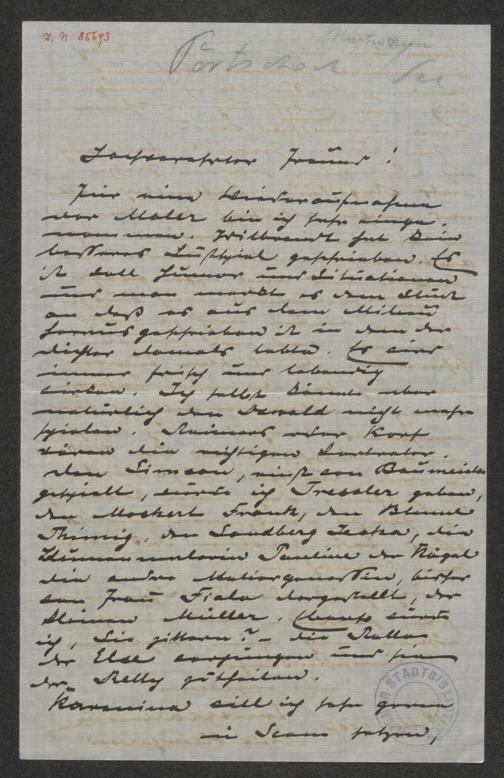 J. N. 85693
Hartmann
Pörtschach
See
Hochverehrter Freund!
Für eine Wiederaufnahme
der Maler bin ich sehr einge
nommen. Wilbrandt hat kein
besseres Lustspiel geschrieben. Es
ist voll Humor und Situationen
und man merkt es dem Stück
an daß es aus dem Milieu
heraus geschrieben ist in dem der
Dichter damals lebte. Es wird
immer frisch und lebendig
wirken. Ich selbst könnte aber
natürlich den Oswald nicht mehr
spielen. Reimers oder Korff
wären die richtigen Vertreter.
Den Simson, einst von Baumeister
gespielt, würde ich Tressler geben,
den Mockert Frank, den Blume
Thimig, den Sandberg Zeska, die
Blumenmalerin Pauline der Kögel
die andre Ateliergenossin, bisher
von Frau Fiala dargestellt, der
kleinen Müller. Etwas würde
ich, Sie zittern? – die Rolle
der Else verjüngen und sie
der Retty zutheilen.
Karenina will ich sehr gerne
in Scene setzen,